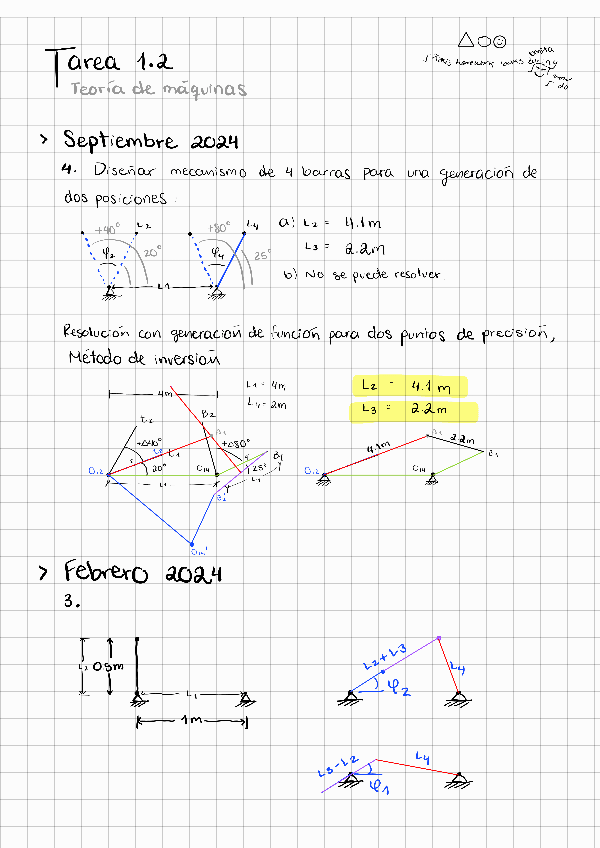 Tarea 1.2
Teoría de máquinas
> Septiembre 2024
4. Diseñar mecanismo de 4 barras para una generación de
dos posiciones.
+40° L2 +80° L4
φ2 20° φ4 25°
L1
a) L2 = 4.1m
L3 = 2.2m
b) No se puede resolver
Resolución con generación de función para dos puntos de precisión,
Método de inversión
4m
L1 = 4m
L4 = 2m
B2
+Δ40° +Δ80°
20° 25°
L1
L2 = 4.1 m
L3 = 2.2 m
4.1m 2.2m
> Febrero 2024
3.
0.5m
L1
1m
L2+L3
L4
φ2
L3-L2
L4
φ1